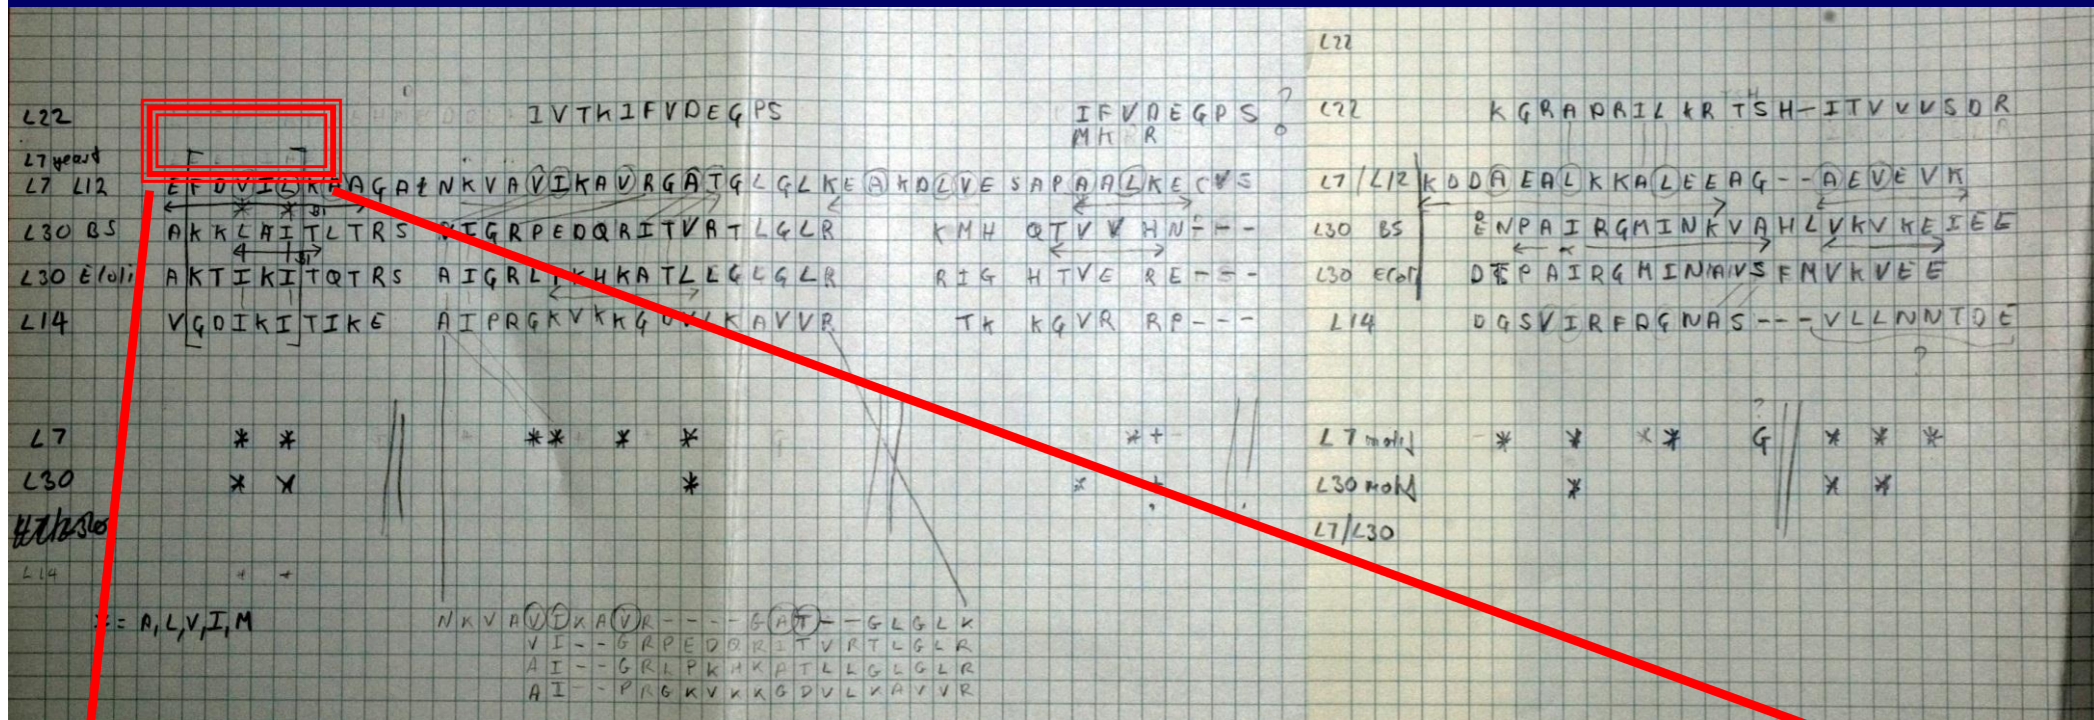 L22
L22 IVTKIFVDEGPS IFVDEGPS ? L22 KGRADRILKRTSH-ITVVVSDR
MK R
L7 yeast
L7 L12 EFDVILKAAGA NKVAVIKAVRGATGLGLKEAKDLVESAPAALKE L7/L12 KDDAEALKKALEEAG--AEVEVK
L30 BS AKKLAITLTRS VIGRPEDQRITVRTLGLR KMH QTVVHN--- L30 BS ENPAIRGMINKVAHLVKVKEIEE
L30 E/coli AKTIKITQTRS AIGRL KHKATLLGLGLR RIG HTVE RE--- L30 Ecoli D PAIRGMINAVSFMVKVEE
L14 VGDIKITIKE AIPRGKVKKGDVLKAVVR TK KGVR RP--- L14 DGSVIRFDGNAS---VLLNNTDE
?
?
L7 * * ** * * *+ L7 motif * * ** G * * *
L30 * * * * + L30 motif * * *
L7/L30
L14 + +
* = A,L,V,I,M
NKVAVIKAVR----GAT--GLGLK
VI--GRPEDQRITVRTLGLR
AI--GRLPKHKATLLGLGLR
AI--PRGKVKKGDVLKAVVR